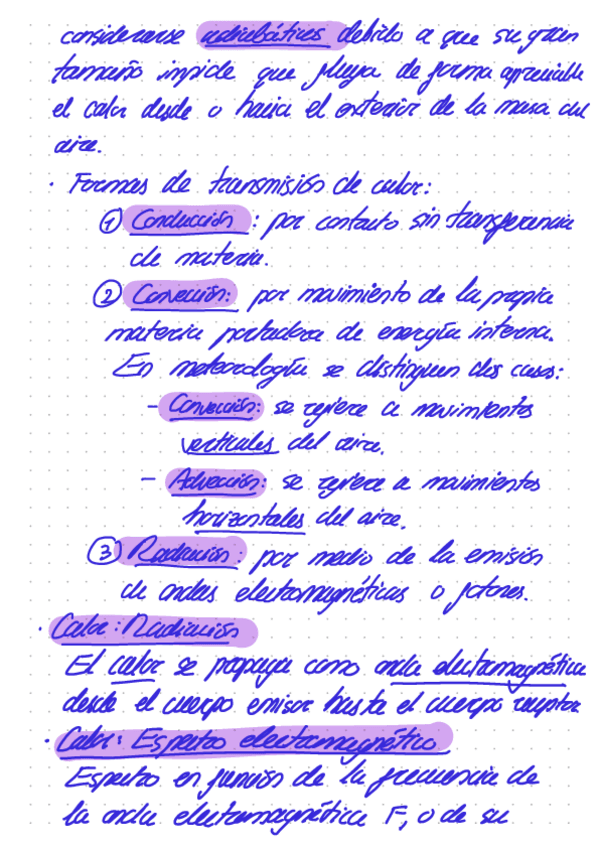 considerarse adiabáticos debido a que su gran
tamaño impide que fluya de forma apreciable
el calor desde o hacia el exterior de la masa del
aire.
· Formas de transmisión de calor:
① Conducción: por contacto sin transferencia
de materia.
② Convección: por movimiento de la propia
materia portadora de energía interna.
En meteorología se distinguen dos casos:
- Convección: se refiere a movimientos
verticales del aire.
- Advección: se refiere a movimientos
horizontales del aire.
③ Radiación: por medio de la emisión
de ondas electromagnéticas o fotones.
· Calor: Radiación
El calor se propaga como onda electromagnética
desde el cuerpo emisor hasta el cuerpo receptor
· Calor: Espectro electromagnético
Espectro en función de la frecuencia de
la onda electromagnética F, o de su